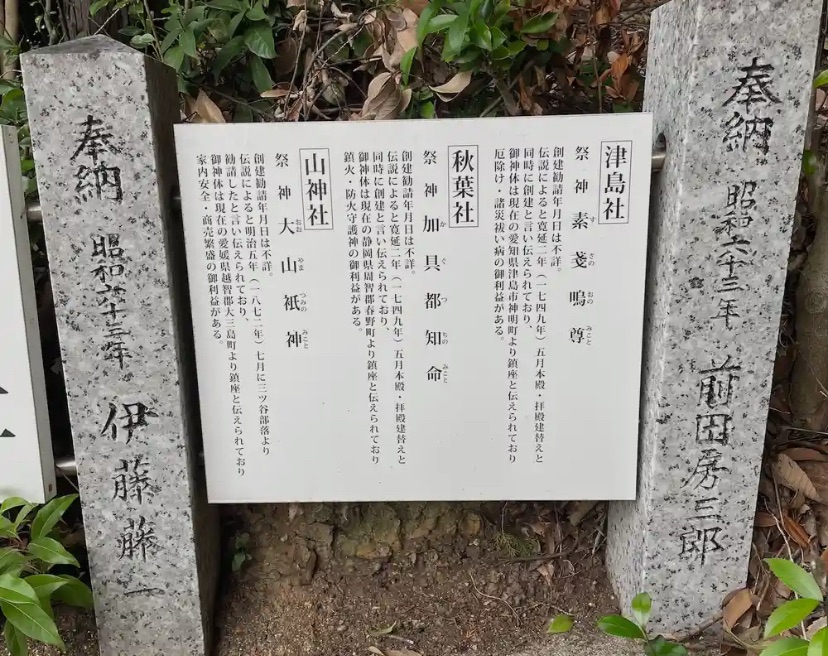 奉納 昭和六十三年 前田房三郎
津島社
祭神 素戔嗚尊
すさのおのみこと
創建勧請年月日は不詳。
伝説によると寛延二年（一七四九年）五月本殿・拝殿建替えと
同時に創建と言い伝えられており、
御神体は現在の愛知県津島市神明町より鎮座と伝えられており
厄除け・諸災祓い病の御利益がある。
秋葉社
祭神 加具都知命
かぐつちのみこと
創建勧請年月日は不詳。
伝説によると寛延二年（一七四九年）五月本殿・拝殿建替えと
同時に創建と言い伝えられており、
御神体は現在の静岡県周智郡春野町より鎮座と伝えられており
鎮火・防火守護神の御利益がある。
山神社
祭神 大山祇神
おおやまつみのみこと
創建勧請年月日は不詳。
伝説によると明治五年（一八七二年）七月に三ツ谷部落より
勧請したと言い伝えられており、
御神体は現在の愛媛県越智郡大三島町より鎮座と伝えられており
家内安全・商売繁盛の御利益がある。
奉納 昭和六十三年 伊藤藤一